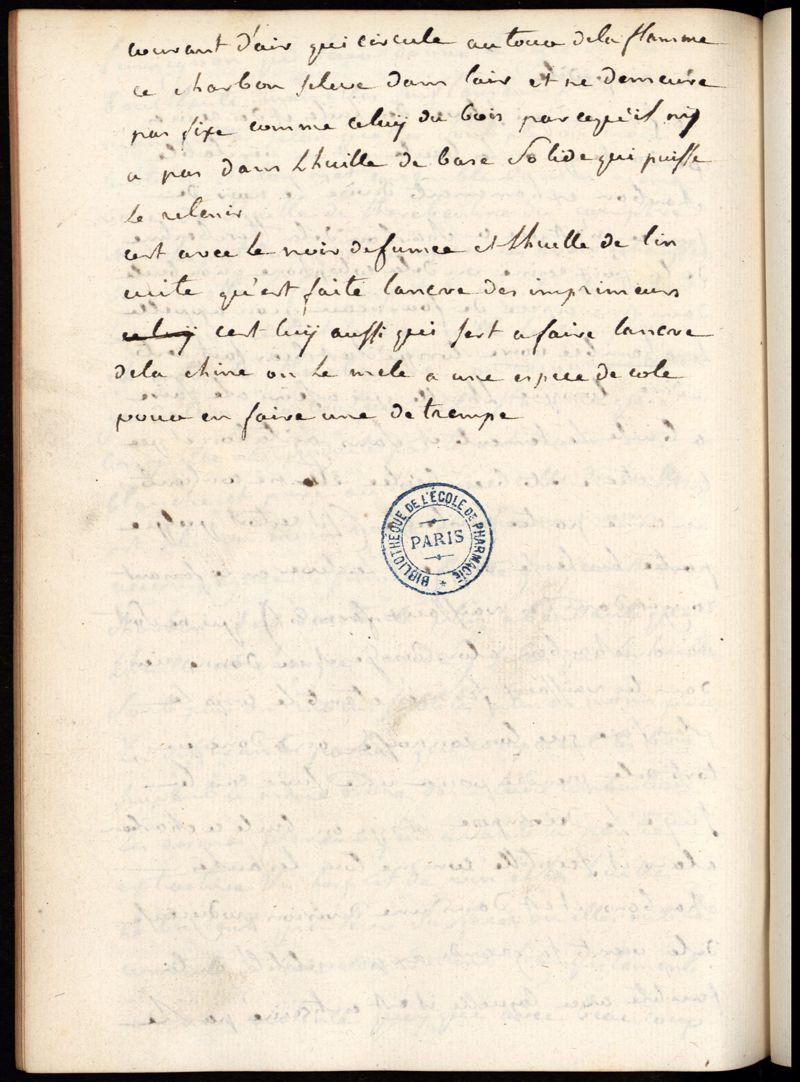 courant d'air qui circule au tour de la flamme
ce charbon seleve dans lair et ne demeure
pas fixe comme celuy du bois parcequ'il ny
a pas dans Lhuille de base Solide qui puisse
Le retenir
cest avec Le noir defumee et Lhuille de lin
cuite qu'est faite lancre des imprimeurs
celuy cest luy aussi qui sert a faire lancre
dela chine on Le mele a une espece de cole
pour en faire une detrempe
BIBLIOTHÈQUE DE L'ÉCOLE DE PHARMACIE
PARIS